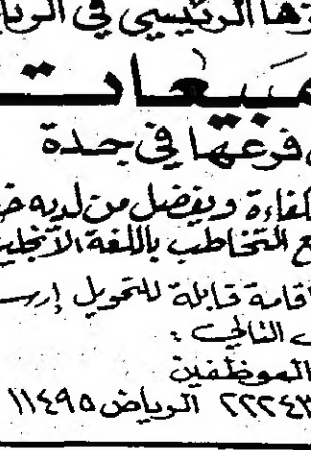 الرئيسي في الريا
مبيعات
فرعها في جدة
كفاءة ويفضل من لديه خ
ع التخاطب باللغة الانجليز
اقامة قابلة للتحويل إرسـ
التالي :
الموظفين
٢٢٢٤٣ الرياض ١١٤٩٥